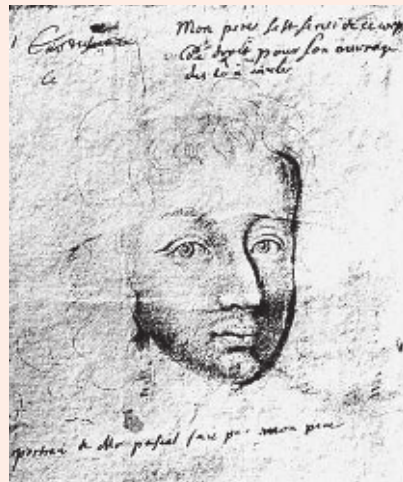 Mon pere sest servi de ce corps
De droit pour son ouvrage
des loix civiles
portrai de Mr pascal fait par mon pere